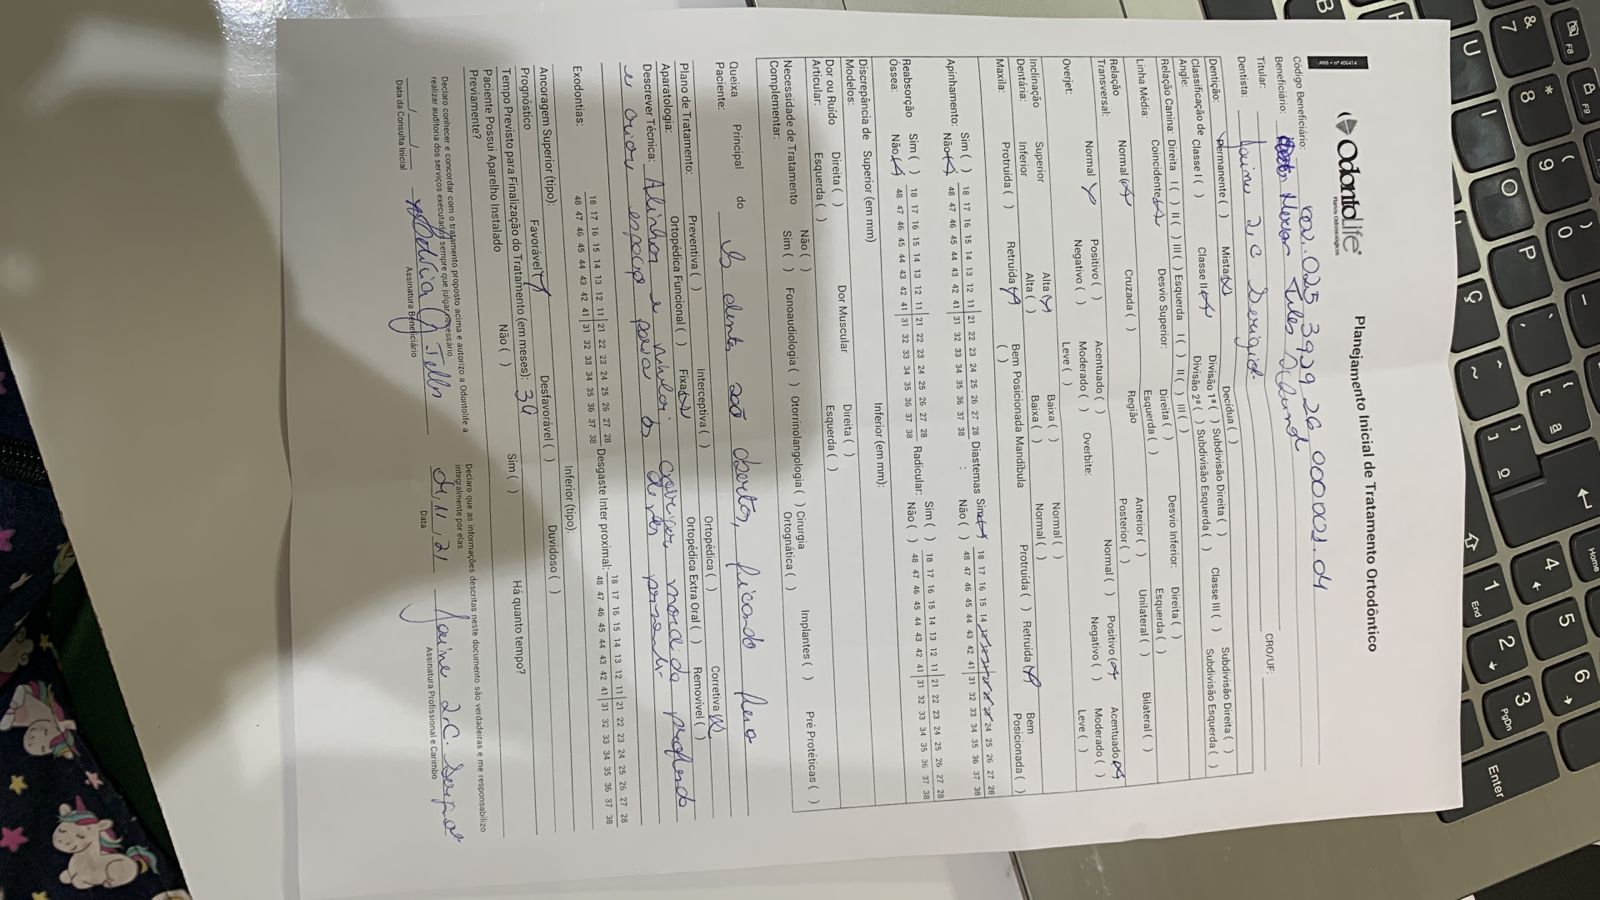 ANS - nº 406414
OdontoLife
Planos Odontológicos
Planejamento Inicial de Tratamento Ortodôntico
Código Beneficiário: 002.025.3929.26.000005.04
Beneficiário:
Titular:
Dentista: Jaine 2.C CRO/UF:
Dentição: Permanente ( ) Mista (x) Decídua ( )
Classificação de Angle: Classe I ( ) Classe II (x) Divisão 1ª ( ) Subdivisão Direita ( ) Classe III ( ) Subdivisão Direita ( )
Divisão 2ª ( ) Subdivisão Esquerda ( ) Subdivisão Esquerda ( )
Relação Canina: Direita I ( ) II ( ) III ( ) Esquerda I ( ) II ( ) III ( )
Linha Média: Coincidente (x) Desvio Superior: Direita ( ) Esquerda ( ) Desvio Inferior: Direita ( ) Esquerda ( )
Relação Transversal: Normal (x) Cruzada ( ) Região Anterior ( ) Posterior ( ) Unilateral ( ) Bilateral ( )
Overjet: Normal (x) Positivo ( ) Negativo ( ) Acentuado ( ) Moderado ( ) Leve ( ) Overbite: Normal ( ) Positivo (x) Negativo ( ) Acentuado (x) Moderado ( ) Leve ( )
Inclinação Dentária: Superior Alta (x) Baixa ( ) Normal ( )
Inferior Alta ( ) Baixa ( ) Normal ( )
Maxila: Protruida ( ) Retruida (x) Bem Posicionada ( ) Mandíbula Protruida ( ) Retruida (x) Bem Posicionada ( )
Apinhamento: Sim ( ) Não (x) 18 17 16 15 14 13 12 11 | 21 22 23 24 25 26 27 28 Diastemas: Sim (x) Não ( ) 18 17 16 15 14 13 12 11 21 22 23 24 25 26 27 28
48 47 46 45 44 43 42 41 | 31 32 33 34 35 36 37 38 48 47 46 45 44 43 42 41 | 31 32 33 34 35 36 37 38
Reabsorção Óssea: Sim ( ) Não (x) 18 17 16 15 14 13 12 11 | 21 22 23 24 25 26 27 28 Radicular: Sim ( ) Não ( ) 18 17 16 15 14 13 12 11 | 21 22 23 24 25 26 27 28
48 47 46 45 44 43 42 41 | 31 32 33 34 35 36 37 38 48 47 46 45 44 43 42 41 | 31 32 33 34 35 36 37 38
Discrepância de Modelos: Superior (em mm) Inferior (em mm):
Dor ou Ruído Articular: Direita ( ) Esquerda ( ) Dor Muscular Direita ( ) Esquerda ( )
Necessidade de Tratamento Complementar: Não ( ) Sim ( ) Fonoaudiologia ( ) Otorrinolangologia ( ) Cirurgia Ortognática ( ) Implantes ( ) Pré Protéticas ( )
Queixa Principal do Paciente: Os dentes são abertos, ficando feio
Plano de Tratamento: Preventiva ( ) Interceptiva ( ) Ortopédica ( ) Corretiva (x)
Aparatologia: Ortopédica Funcional ( ) Fixa (x) Ortopédica Extra Oral ( ) Removível ( )
Descrever Técnica: Alinhar e nivelar corrigir mordida profunda
e criar espaço para os dentes
Exodontias: 18 17 16 15 14 13 12 11 | 21 22 23 24 25 26 27 28 Desgaste Inter proximal: 18 17 16 15 14 13 12 11 | 21 22 23 24 25 26 27 28
48 47 46 45 44 43 42 41 | 31 32 33 34 35 36 37 38 48 47 46 45 44 43 42 41 | 31 32 33 34 35 36 37 38
Ancoragem Superior (tipo): Inferior (tipo):
Prognóstico Favorável (x) Desfavorável ( ) Duvidoso ( )
Tempo Previsto para Finalização do Tratamento (em meses):
Paciente Possui Aparelho Instalado Previamente? Não ( ) Sim ( ) Há quanto tempo?
Declaro conhecer e concordar com o tratamento proposto acima e autorizo a Odontolife a realizar auditoria dos serviços executados sempre que julgar necessário
Declaro que as informações descritas neste documento são verdadeiras e me responsabilizo integralmente por elas.
Data da Consulta Inicial Assinatura Beneficiário Data Assinatura Profissional e Carimbo